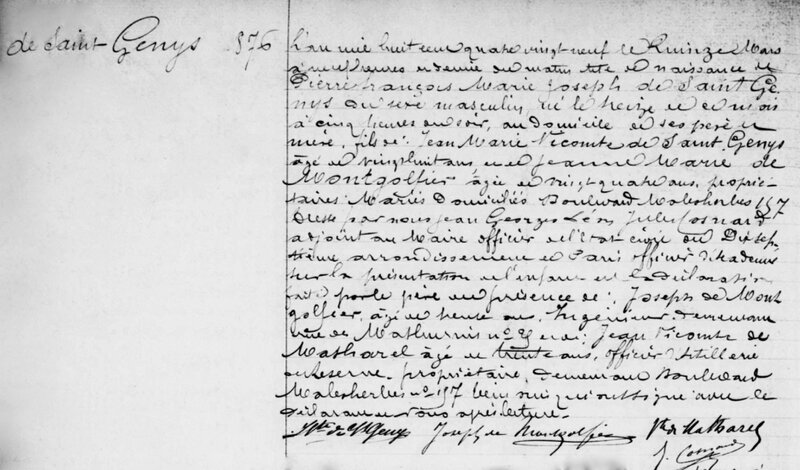 de Saint Genys 876
L'an mil huit cent quatre vingt neuf le Quinze Mars
à neuf heures et demie du matin acte de naissance de
Pierre François Marie Joseph de Saint Ge
nys du sexe masculin, né le treize de ce mois
à cinq heures du soir, au domicile de ses père et
mère, fils de: Jean Marie Vicomte de Saint Genys
âgé de vingt huit ans et de Jeanne Marie de
Montgolfier âgée de vingt quatre ans, proprié-
taires Mariés Domiciliés Boulevard Malesherbes 157
Dressé par nous Jean Georges Léon Jules Cosnard
adjoint au Maire officier de l'état civil du Dix sep-
tième arrondissement de Paris officier d'Académie
sur la présentation de l'enfant et la déclaration
faite par le père en présence de: Joseph de Mont
golfier, âgé de trente ans, Ingénieur, demeurant
rue des Mathurins n° et de: Jean Vicomte de
Matharel âgé de trente ans, officier d'artillerie
de réserve, propriétaire, demeurant Boulevard
Malesherbes n° 157 qui ont signé avec le
déclarant et nous après lecture.
Vte de St Genys Joseph de Montgolfier Vte de Matharel
J. Cosnard